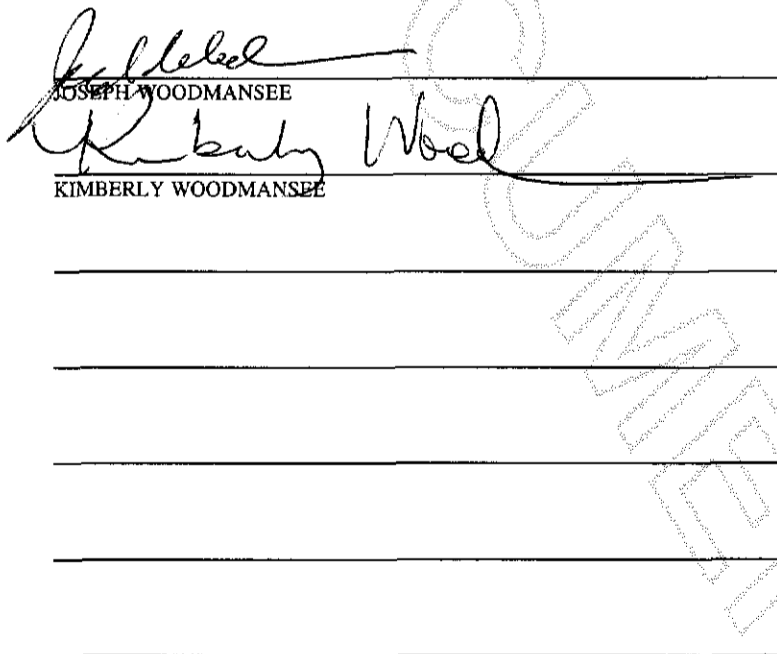 JOSEPH WOODMANSEE
Kimberly Wood
KIMBERLY WOODMANSEE